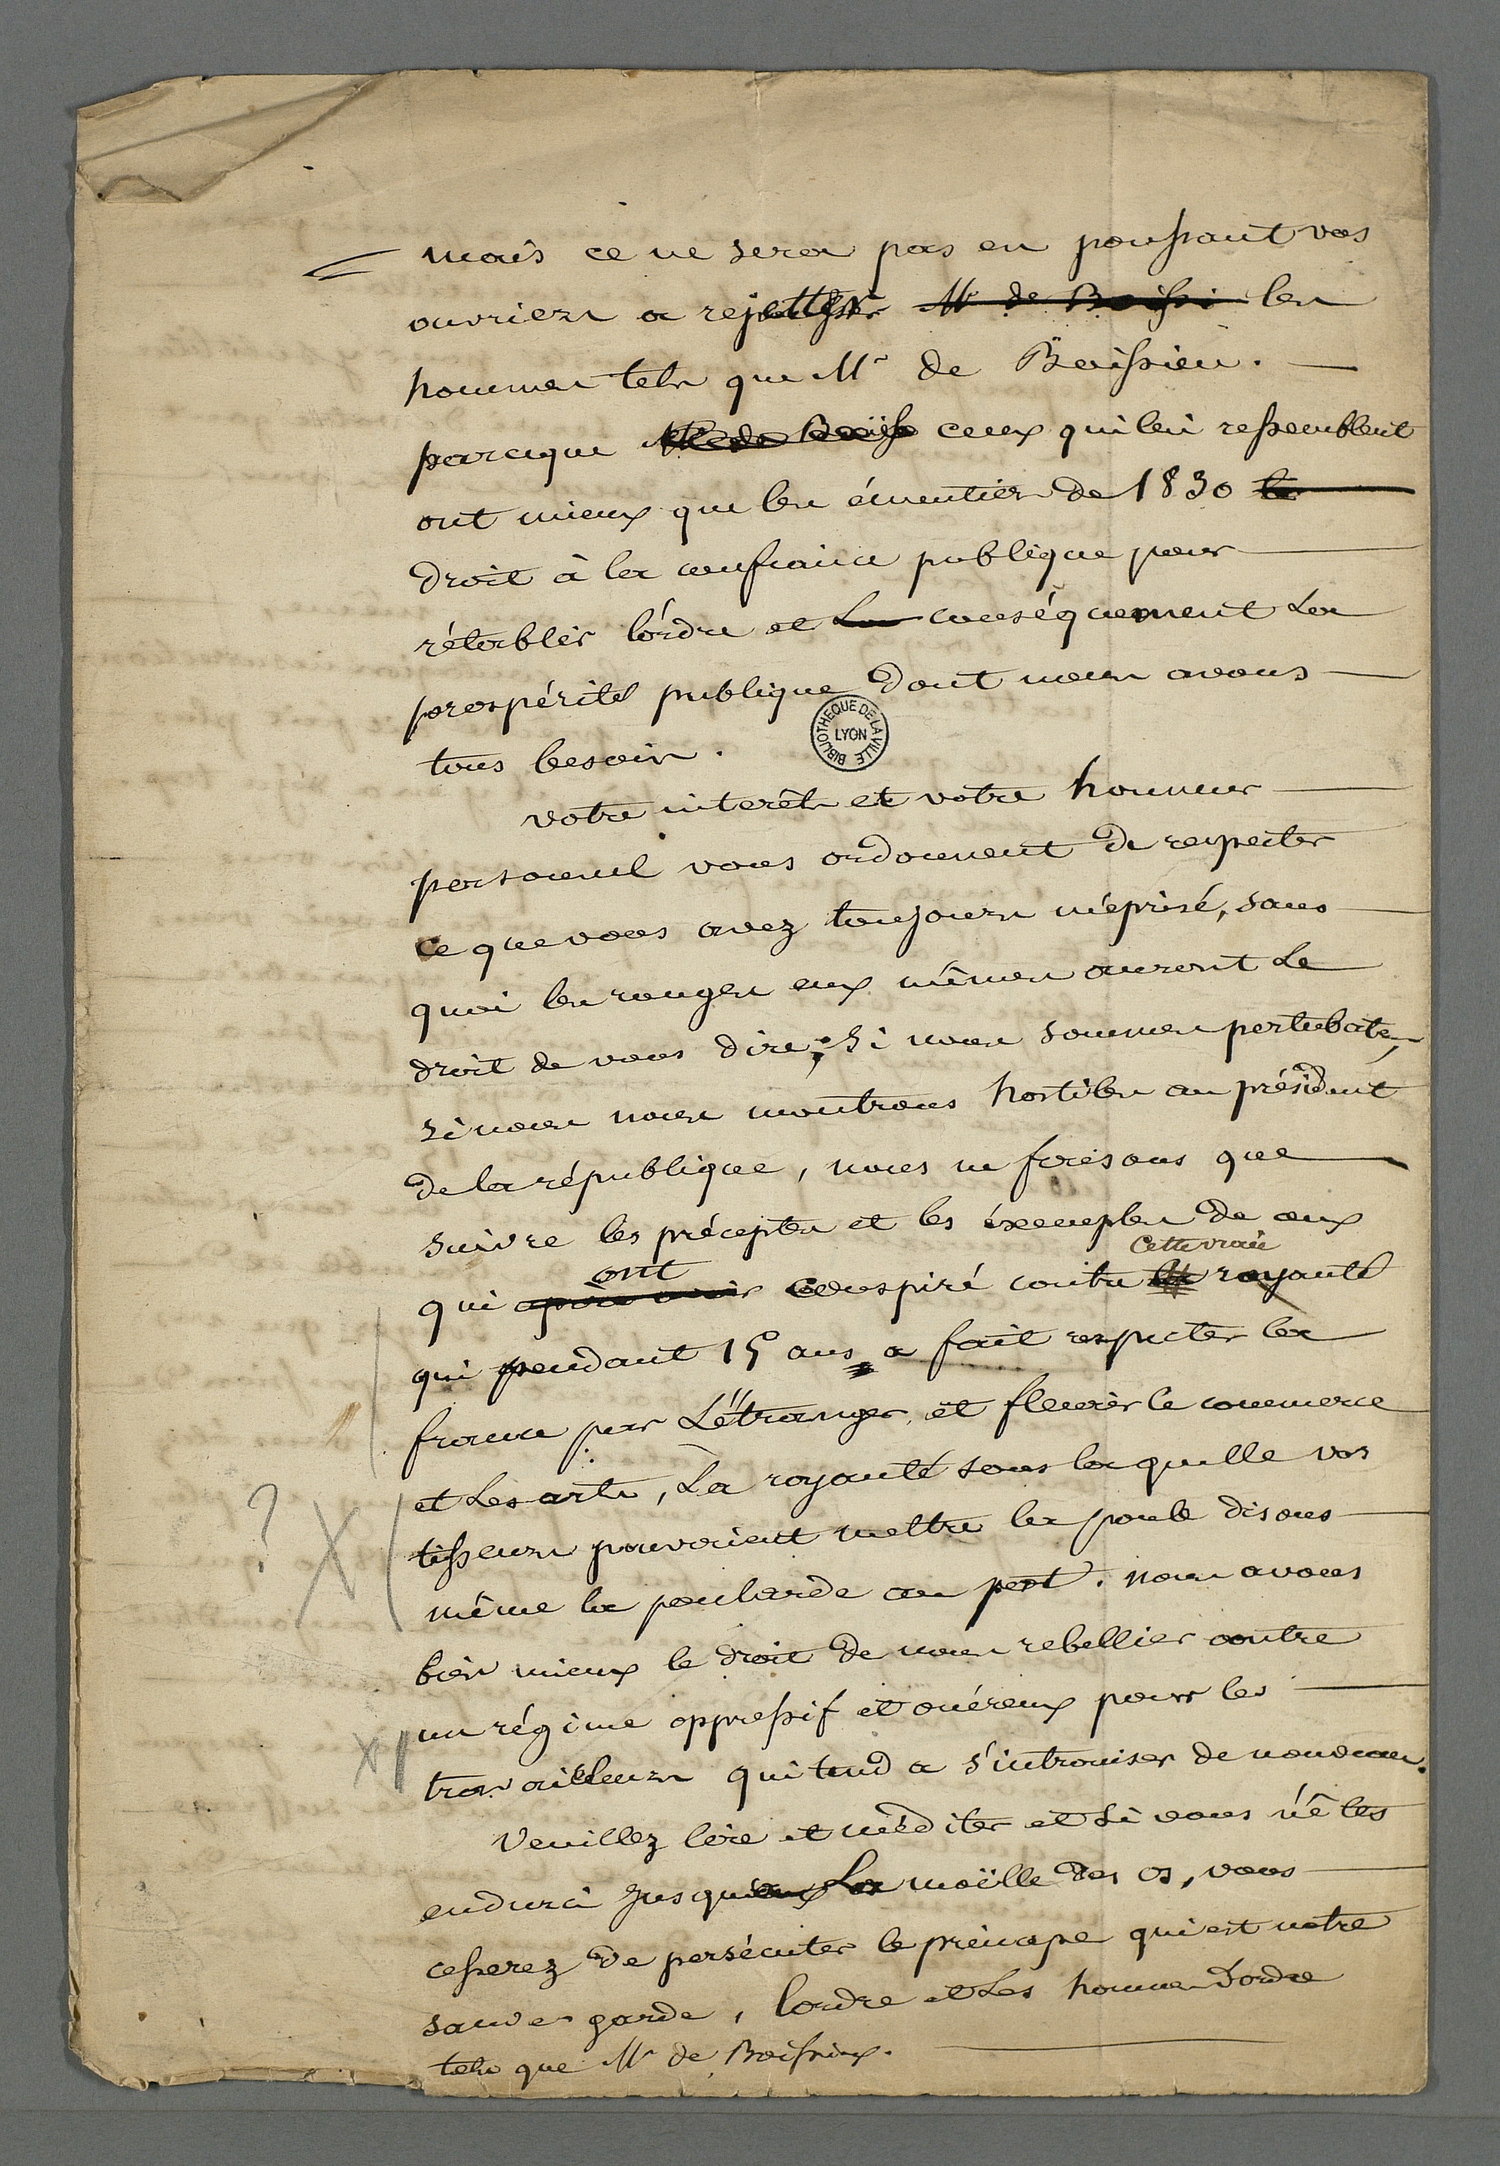 mais ce ne sera pas en poussant vos
ouvriers a rejetter M de Boissi les
hommes tels que Mr de Boissieu.
parceque ceux qui lui ressemblent
ont mieux que les émeutiers de 1830
droit à la confiance publique pour
rétablir l'órdre et La conséquement La
prospérité publique dont nous avons
tous besoin.
BIBLIOTHEQUE DE LA VILLE LYON
votre interêts et votre honneur
personnel vous ordonnent de respecter
ce que vous avez toujours méprisé, sans
quoi les rouges eux mêmes auront Le
droit de vous dire; Si nous sommes pertubate,
Si nous nous montrons hostiles au président
de la république, nous ne faisons que
suivre les préceptes et les éxemples de ceux
cette vraie
ont
qui après avoir conspiré contre la royauté
qui pendant 15 ans a fait respecter la
france par L'étranger, et fleurir le commerce
et Les arts, La royauté sous laquelle vos
tisseurs pouvoient mettre la poule disons
même la poularde au pot. nous avons
bien mieux le droit de nous rebellier contre
un régime oppressif et onéreux pour les
? X
travailleurs qui tend a s'introniser de nouveau.
X
Veuillez lire et méditer et Si vous n'êtes
endurci jusqu'aux La moëlle des os, vous
cesserez de perséciter le principe qui est votre
sauve garde, lordre et Les hommes d'ordre
tels que Mr de Boissieux.